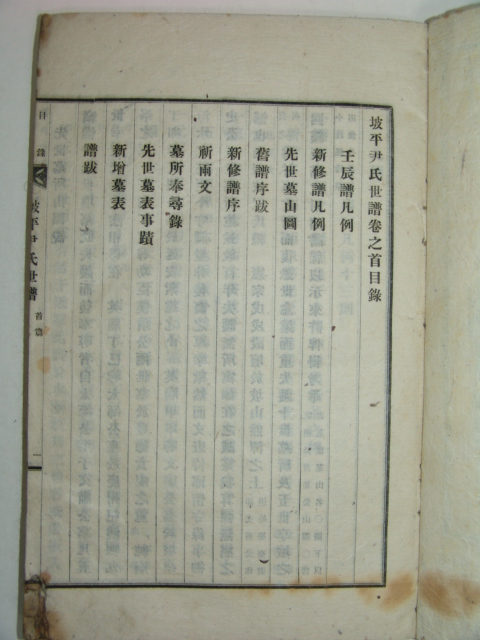 坡平尹氏世譜卷之首目錄
壬辰譜凡例
新修譜凡例
先世墓山圖
舊譜序跋
新修譜序
祈雨文
墓所奉尋錄
先世墓表事蹟
新增墓表
譜跋
目錄
坡平尹氏世譜 首篇
一